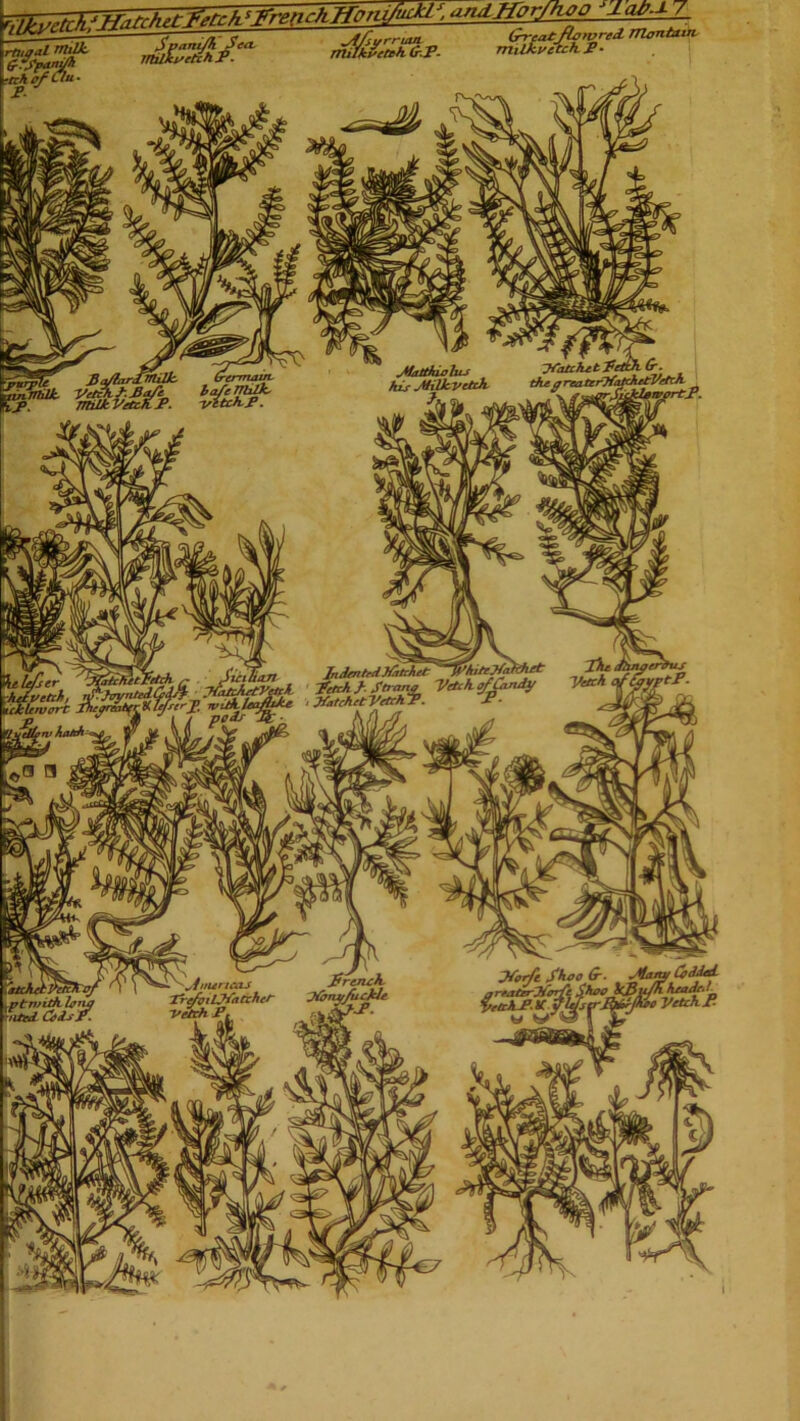 Milkvetch, Hatchet Fetch, French Honyſuckl, and Horſhoo Tab. 17
rtugal milk
G. Spaniſh
etch of Clu.
P.
Spaniſh Sea
milkvetch P.
Aſsyrrian
milkvetch G.P.
Great flowred Montain
milkvetch P.
purple
milk
P.
Baſtard milk
Vetch J. Baſe
milk Vetch P.
Germain
baſe Milk
vetch P.
Matthiolus
his Milkvetch
Hatchet Fetch G.
the greater Hatchet Vetch
or Sicklewort P.
he leſser
hetvetch,
icklewort
P.
Hatchet Fetch G
Joynted Cods
The greater & leſser P.
Sicilian
Hatchet Vetch
with leaflike
pods
Indented Hatchet
Fetch J. Strang
Hatchet Vetch P.
White Hatchet
Vetch of Candy
P.
The dangerous
Vetch of Egypt P.
yellow hatch
atchet Vetch of
ypt with long
inted Cods P.
Americas
Trefoil Hatchet
vetch P.
French
Honyſuckle
P.
Horſe Shoo G.
greater Horſe Shoo
Vetch P. & leſser
Many Codded
& Buſh headed
Horſshoo Vetch P.